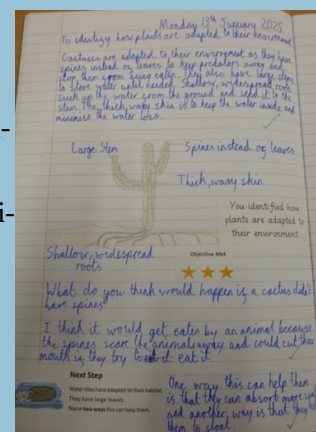 Monday 13th January 2025
To identify how plants are adapted to their environment
Cactuses are adapted to their environment as they have
spines instead of leaves to keep predators away and
stop them from being eaten. They also have large stems
to store water when needed. Shallow, widespread roots
suck up the water from the ground and send it to the
stem. The thick, waxy skin is to keep the water inside and
minimise the water loss.
Large Stem
Spines instead of leaves
Thick, waxy skin
You identified how
plants are adapted to
their environment.
Shallow, widespread
roots
Objective Met
What do you think would happen if a cactus didn't
have spines?
I think it would get eaten by an animal because
the spines scare the animals away and could cut their
mouth if they try to eat it.
Next Step
Water lilies have adapted to their habitat.
They have large leaves.
Name two ways this can help them.
One way this can help them
is that they can absorb more
and another way is that they help
them to float.